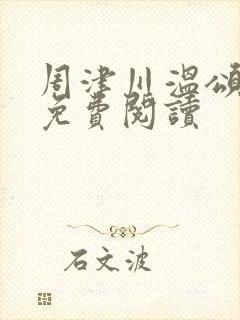 周津川溫頌
免費閱讀
石文波